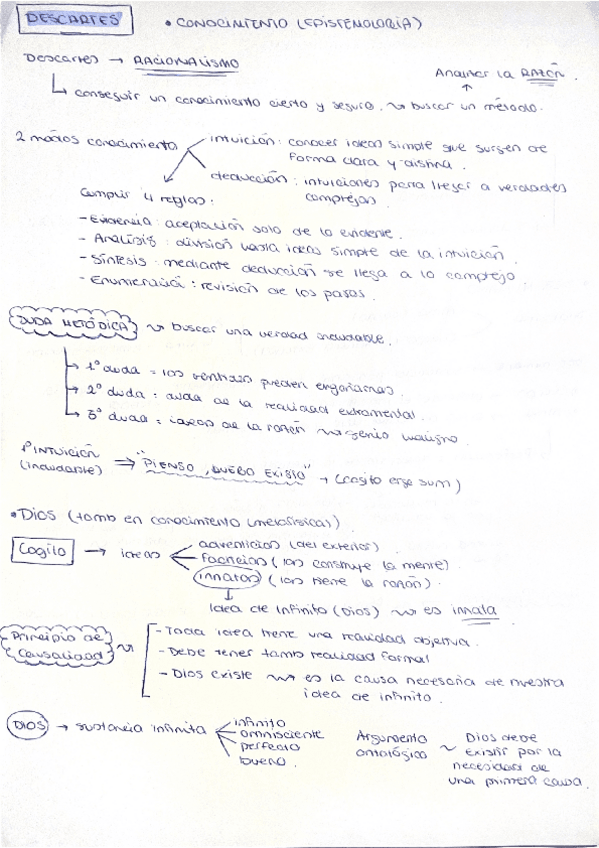 DESCARTES
• CONOCIMIENTO (EPISTEMOLOGÍA)
Descartes → RACIONALISMO
Analizar la RAZÓN.
↳ conseguir un conocimiento cierto y seguro. ⇝ buscar un método.
2 modos conocimiento
intuición: conocer ideas simple que surgen de
forma clara y distina.
deducción: intuiciones para llegar a verdades
complejas.
Cumplir 4 reglas:
- Evidencia: aceptación solo de lo evidente.
- Análisis: división hasta ideas simple de la intuición.
- Síntesis: mediante deducción se llega a lo complejo.
- Enumeración: revisión de los pasos.
DUDA METÓDICA ⇝ buscar una verdad indudable.
↳ 1º duda = los sentidos pueden engañarnos.
↳ 2º duda: duda de la realidad extramental.
↳ 3º duda = ideas de la razón ⇝ genio maligno.
1º INTUICIÓN
(indudable) ⇒ "PIENSO, LUEGO EXISTO" → (cogito ergo sum)
• Dios (tamb en conocimiento (metafísica)).
Cogito → ideas
adventicias (del exterior)
facticias (las construye la mente)
innatas (las tiene la razón).
Idea de Infinito (Dios) ⇝ es innata.
Principio de
Causalidad
- Toda idea tiene una realidad objetiva.
- Debe tener tamb realidad formal
- Dios existe ⇝ es la causa necesaria de nuestra
idea de infinito.
DIOS → sustancia infinita
infinito
omnisciente
perfecto
bueno.
Argumento
ontológico ~
Dios debe
existir por la
necesidad de
una primera causa.